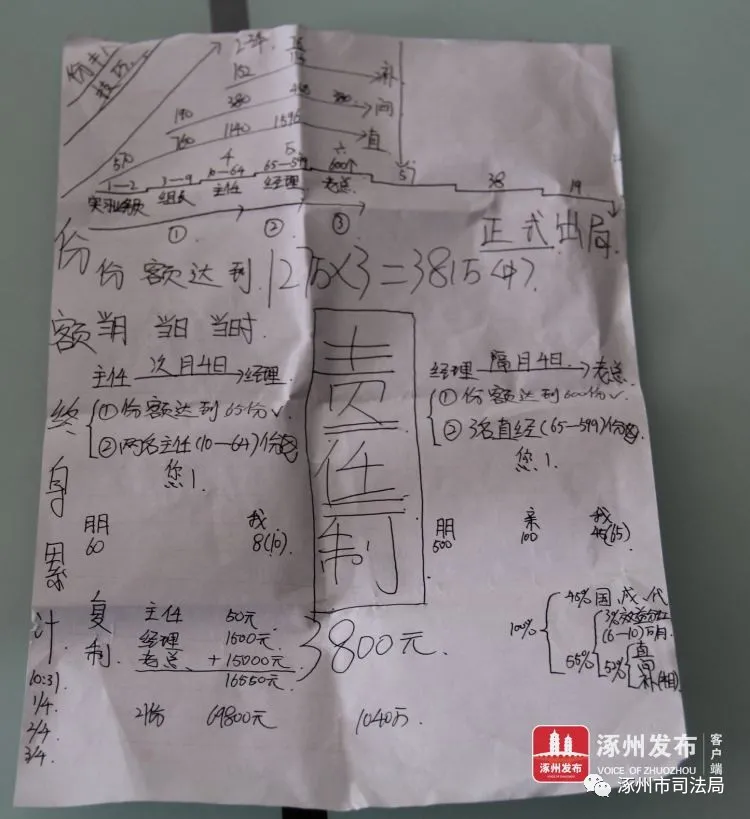 技巧
2-3年
152
补
190
380
间
760
1140
1596
直
570
1—2
3—9
4
10—64
五
65—599
六
600个
38
19
实习业务员
组长
主任
经理
老总
① ② ③
正式出局
份额终身累计
份额达到
当月 当日 当时
责任制
主任 次月4日 经理
①份额达到65份✓
②两名主任(10—64)份
您1
经理 隔月4日 老总
①份额达到600份✓
②3名直经(65—599)份
您1
朋 我
60 8(10)
朋 亲 我
500 100 45(65)
复制
主任 50元
经理 1500元
老总 +15000元
16550元
3800元
100%
45%国
55%
(6—10)万/月
52%
直
间
补(相)
1/4
2/4
3/4
21份 69800元 1040万
涿州发布
VOICE OF ZHUOZHOU
客户端
涿州市司法局